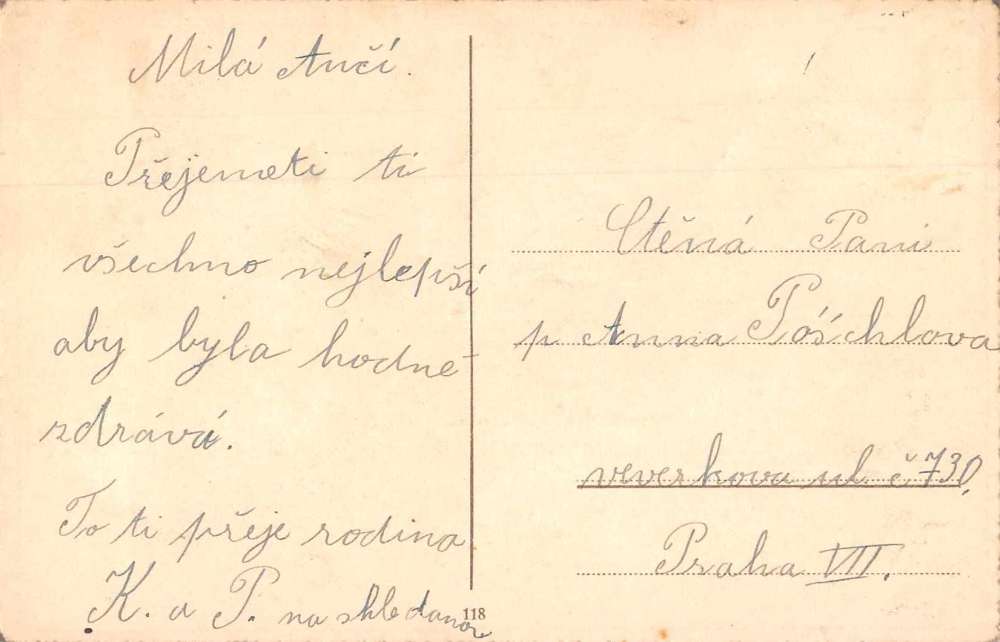 Milá Ančí.
Přejemeti ti
všechno nejlepší
aby byla hodně
zdrává.
To ti přeje rodina
K. a P. na shledanou
118
Ctěná Paní
p Anna Pöschlova
veverkova ul č 730,
Praha VII.